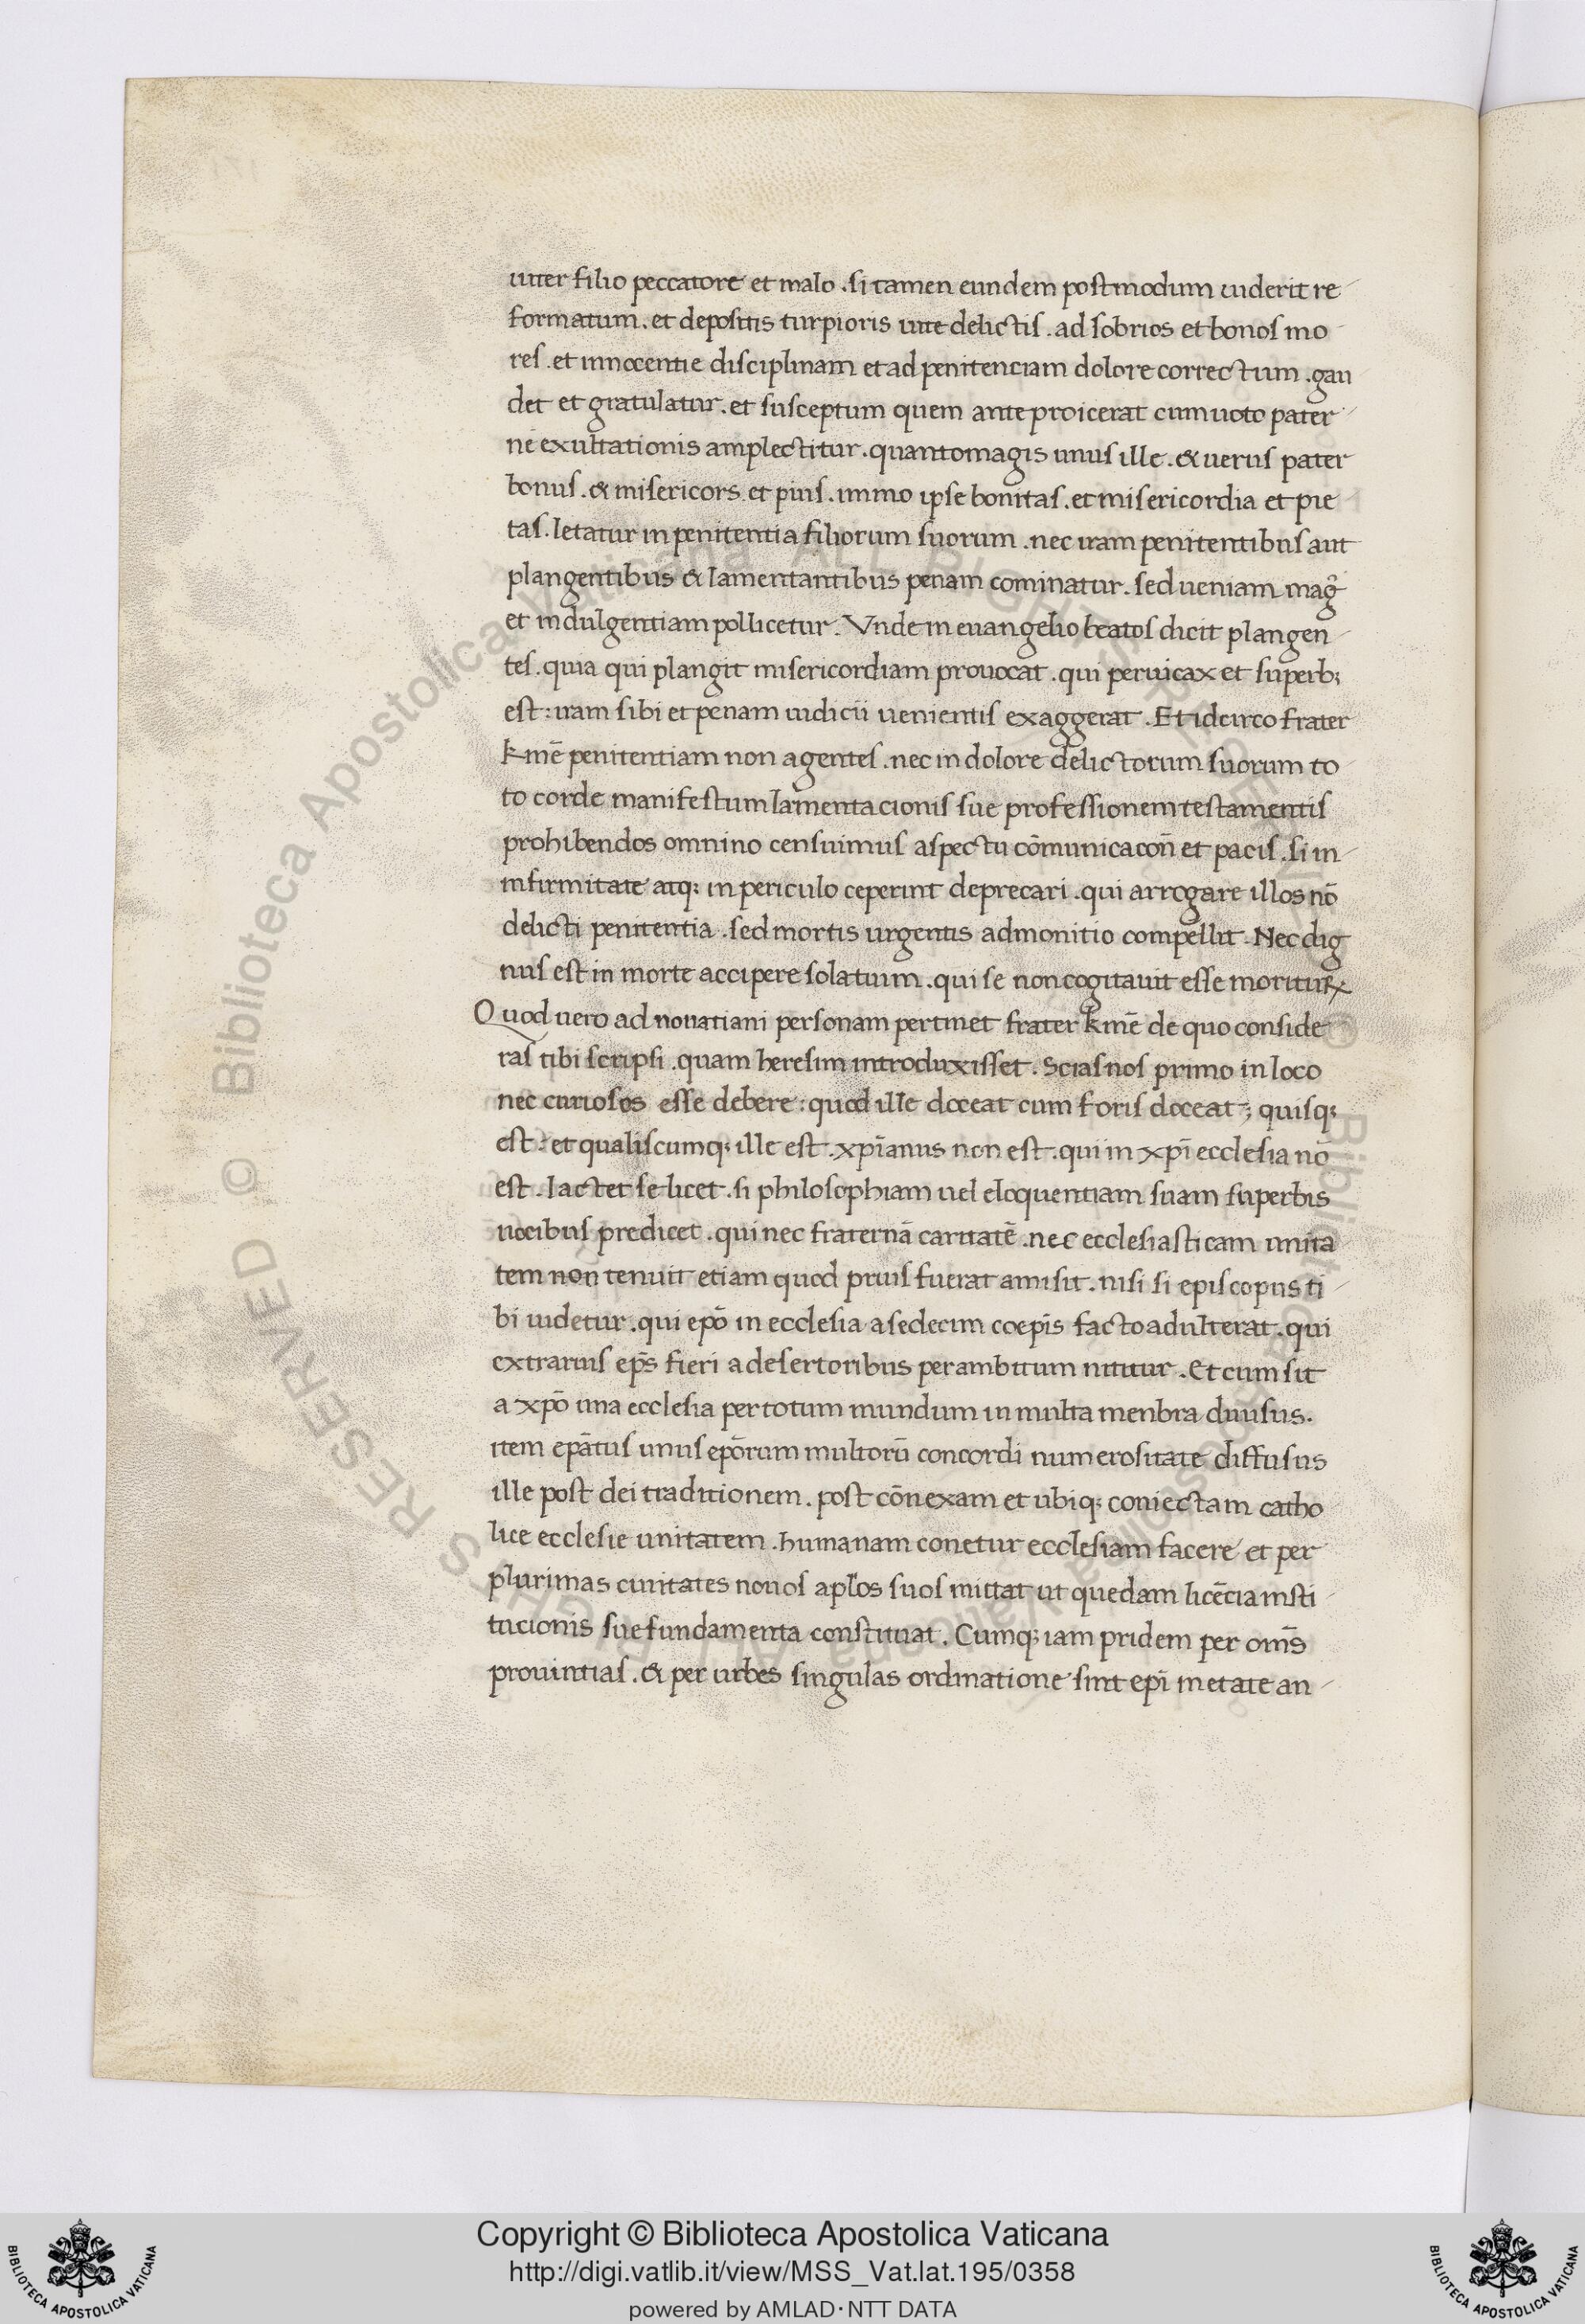 uiter filio peccatore et malo . si tamen eundem postmodum uiderit re
formatum . et depositis turpioris uite delictis . ad sobrios et bonos mo
res . et innocentie disciplinam et ad penitenciam dolore correctum . gau
det et gratulatur . et susceptum quem ante proicerat cum uoto pater
ne exultationis amplectitur . quantomagis unus ille . & uerus pater
bonus . & misericors et pius . immo ipse bonitas . et misericordia et pie
tas . letatur in penitentia filiorum suorum . nec iram penitentibus aut
plangentibus & lamentantibus penam cominatur . sed ueniam mag̃
et indulgentiam pollicetur . Vnde in euangelio beatos dicit plangen
tes . quia qui plangit misericordiam prouocat . qui peruicax et superb;
est : iram sibi et penam iudicii uenientis exaggerat . Et idcirco frater
kmē penitentiam non agentes . nec in dolore delictorum suorum to
to corde manifestum lamentacionis sue professionem testamentis
prohibendos omnino censuimus aspectu cōmunicacoñ et pacis . si in
infirmitate atq; in periculo ceperint deprecari . qui arrogare illos nō
delicti penitentia . sed mortis urgentis admonitio compellit . Nec dig
nus est in morte accipere solatium . qui se non cogitauit esse moriturꝝ
Quod uero ad nouatiani personam pertinet frater kmē de quo conside
ras tibi scripsi . quam heresim introduxisset . Scias nos primo in loco
nec curiosos esse debere : quod ille doceat cum foris doceat ; quisq;
est : et qualiscumq; ille est . xp̄ianus non est . qui in xp̄i ecclesia nō
est . Iactet se licet . si philosophiam uel eloquentiam suam superbis
uocibus predicet . qui nec fraternā caritatē . nec ecclesiasticam unita
tem non tenuit etiam quod prius fuerat amisit . nisi si episcopus ti
bi uidetur . qui ep̄o in ecclesia a sedecim coep̄is facto adulterat . qui
extrarius ep̄s fieri a desertoribus per ambitum nititur . Et cum sit
a xp̄o una ecclesia per totum mundum in multa menbra diuisus .
item ep̄atus unus ep̄orum multorū concordi numerositate diffusus
ille post dei traditionem . post cōnexam et ubiq; coniectam catho
lice ecclesie unitatem . humanam conetur ecclesiam facere et per
plurimas ciuitates nouos apl̄os suos mittat ut quedam licēcia insti
tucionis sue fundamenta constituat . Cumq; iam pridem per om̄s
prouintias . & per urbes singulas ordinatione sint ep̄i in etate an
Copyright © Biblioteca Apostolica Vaticana
http://digi.vatlib.it/view/MSS_Vat.lat.195/0358
powered by AMLAD·NTT DATA
BIBLIOTECA APOSTOLICA VATICANA
BIBLIOTECA APOSTOLICA VATICANA